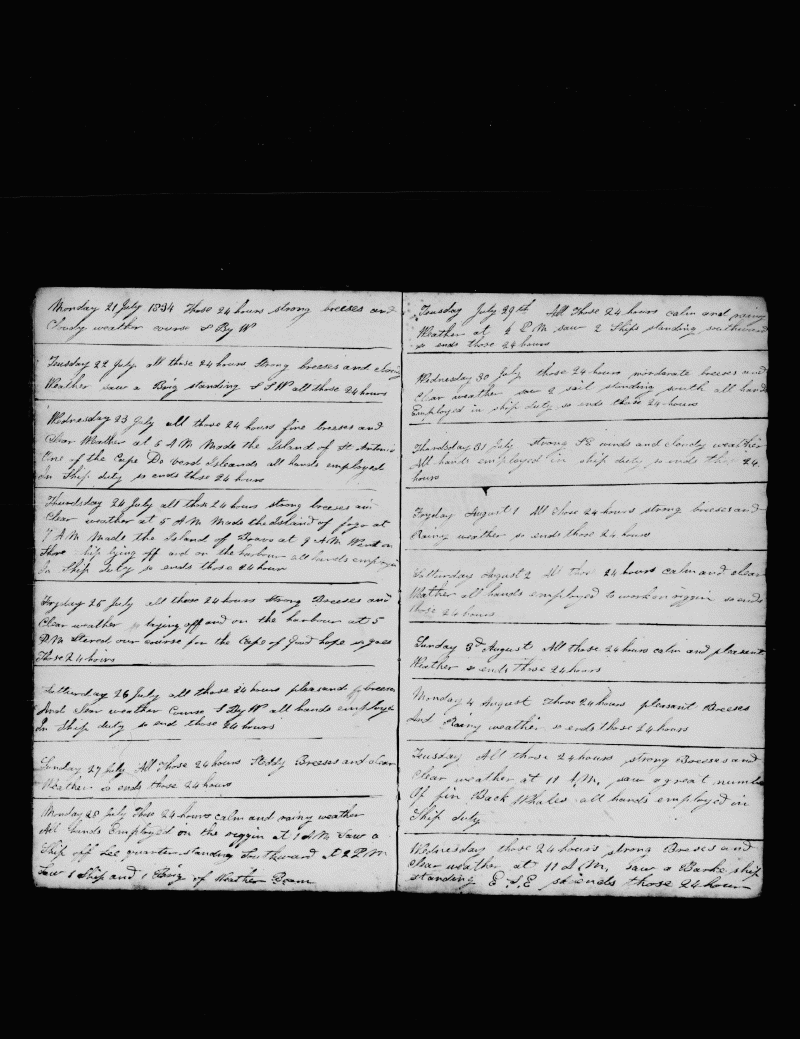 Monday 21 July 1834 Those 24 hours strong breeses and
Cloudy weather course S By W
Teusday 22 July all those 24 hours Strong breeses and
Weather saw a Brig standing S S W all those 24 hours
Wednesday 23 July all those 24 hours fine breeses and
Clear Weather at 5 A M Made the Island of St Antonio
One of the Cape De Verd Isleands all hands employed
In Ship duty so ends those 24 hours
Thursdday 24 July all those 24 hours strong breeses
Clear weather at 5 A M Made the Island of fogo at
7 A M Made the Island of Bravo at 9 A M Went on
Shore ship lying off and on the harbour all hands
In Ship duty so ends those 24 hour
Fryday 25 July all those 24 hours strong Breeses and
Clear weather lying off and on the harbour at 5
P.M Stered our course for the Cape of Good hope so goes
Those 24 hours
Satturday 26 July all those 24 hours pleasands breeses
And Clear weather Course S By W all hands employe
In Ship duty so end those 24 hours
Sunday 27 July All Those 24 hours Steddy Breeses and clear
Weather so ends those 24 hours
Monday 28 July Those 24 hours calm and rainy weather
All hands Employed on the riggin at 1 A M Saw a
Ship off Lee quarter standing Southward at 2 P.M
Saw 1 Ship and 1 Brig of Weather Beam
Teusday July 29th All Those 24 hours calm and rainy
Weather at P.M saw 2 Ships standing southward
so ends those 24 hours
Wednesday 30 July those 24 hours moderate breeses and
Clear weather saw 2 sail standing south all hands
Employed in ship duty so ends those 24 hours
Thursdday 31 July strong winds and cloudy weather
All hands employed in ship duty so ends those 24
hours
Fryday August 1 All those 24 hours strong breeses and
Rainy weather so ends those 24 hours
Satturday August 2 All those 24 hours calm and clear
Weather all hands employed to work on riggin so ends
those 24 hours
Sunday 3d August All those 24 hours calm and pleasent
Weather so ends those 24 hours
Monday 4 August Those 24 hours pleasant Breeses
And Rainy weather so ends those 24 hours
Teusday All those 24 hours strong Breeses and
Clear weather at 11 A.M. saw a great number
Of fin Back Whales all hands employed in
Ship duty
Wednesday those 24 hours strong Breeses and
clear weather at 11 A.M. saw a Barke ship
standing E S E so ends those 24 hour